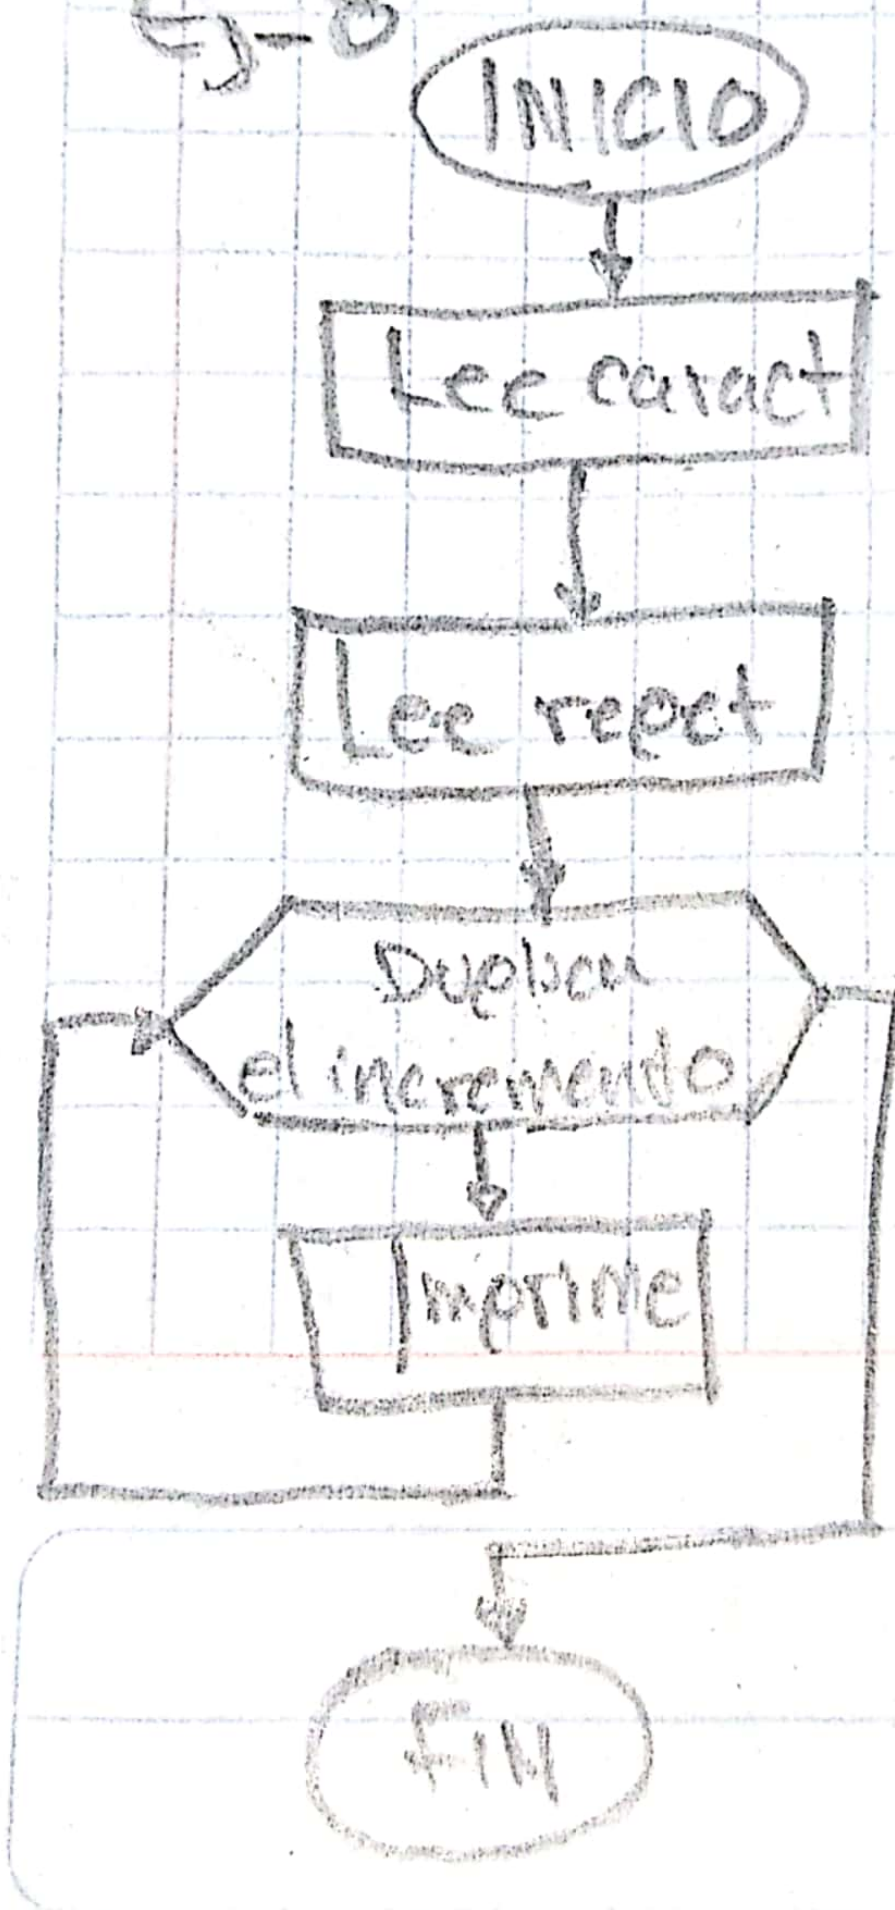 Ej-8
INICIO
Lee caract
Lee repet
el incremento
Imprime
FIN